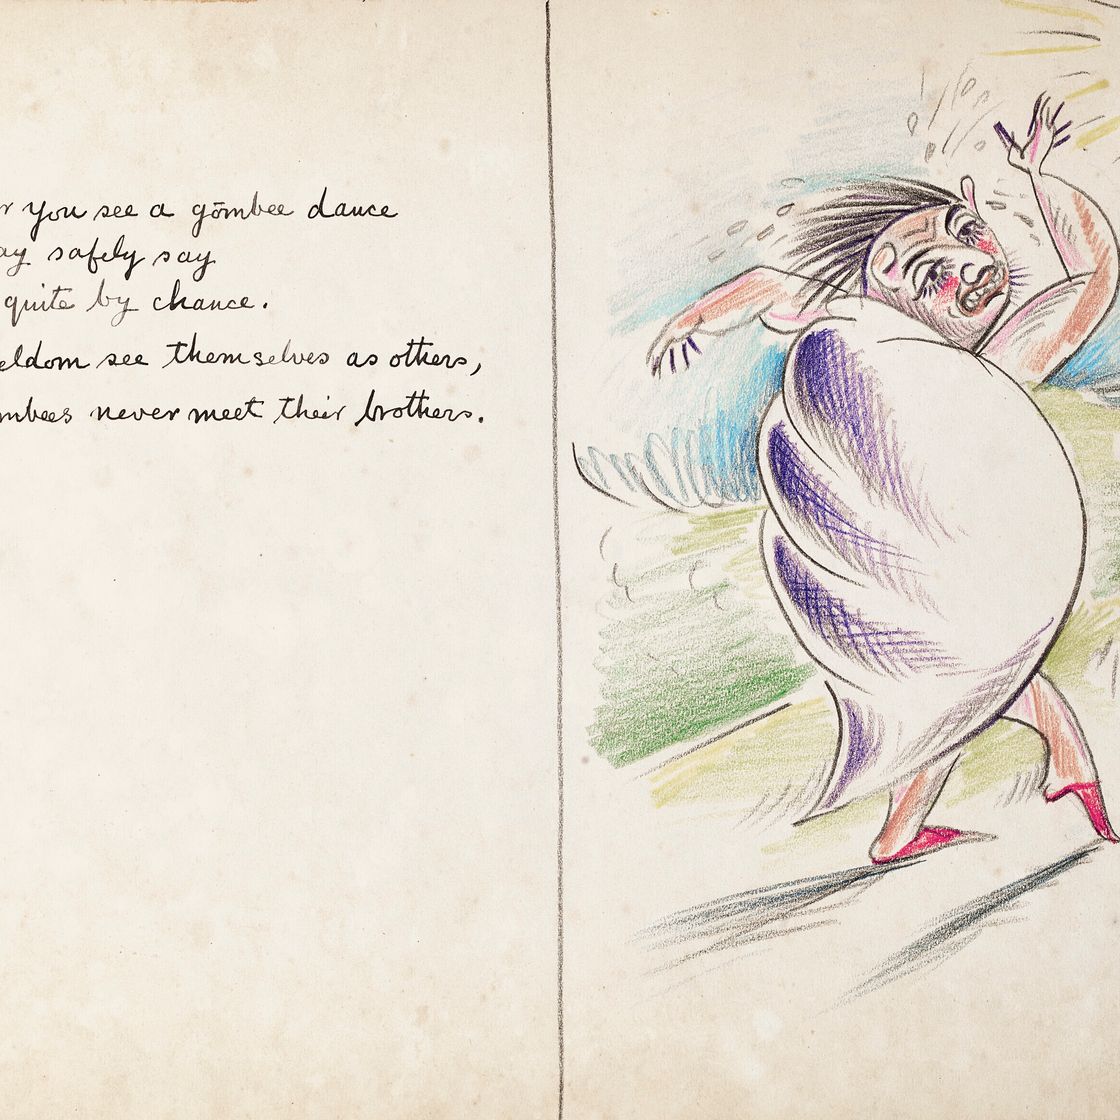 you see a gōmbee dance
safely say
quite by chance.
see themselves as others,
never meet their brothers.